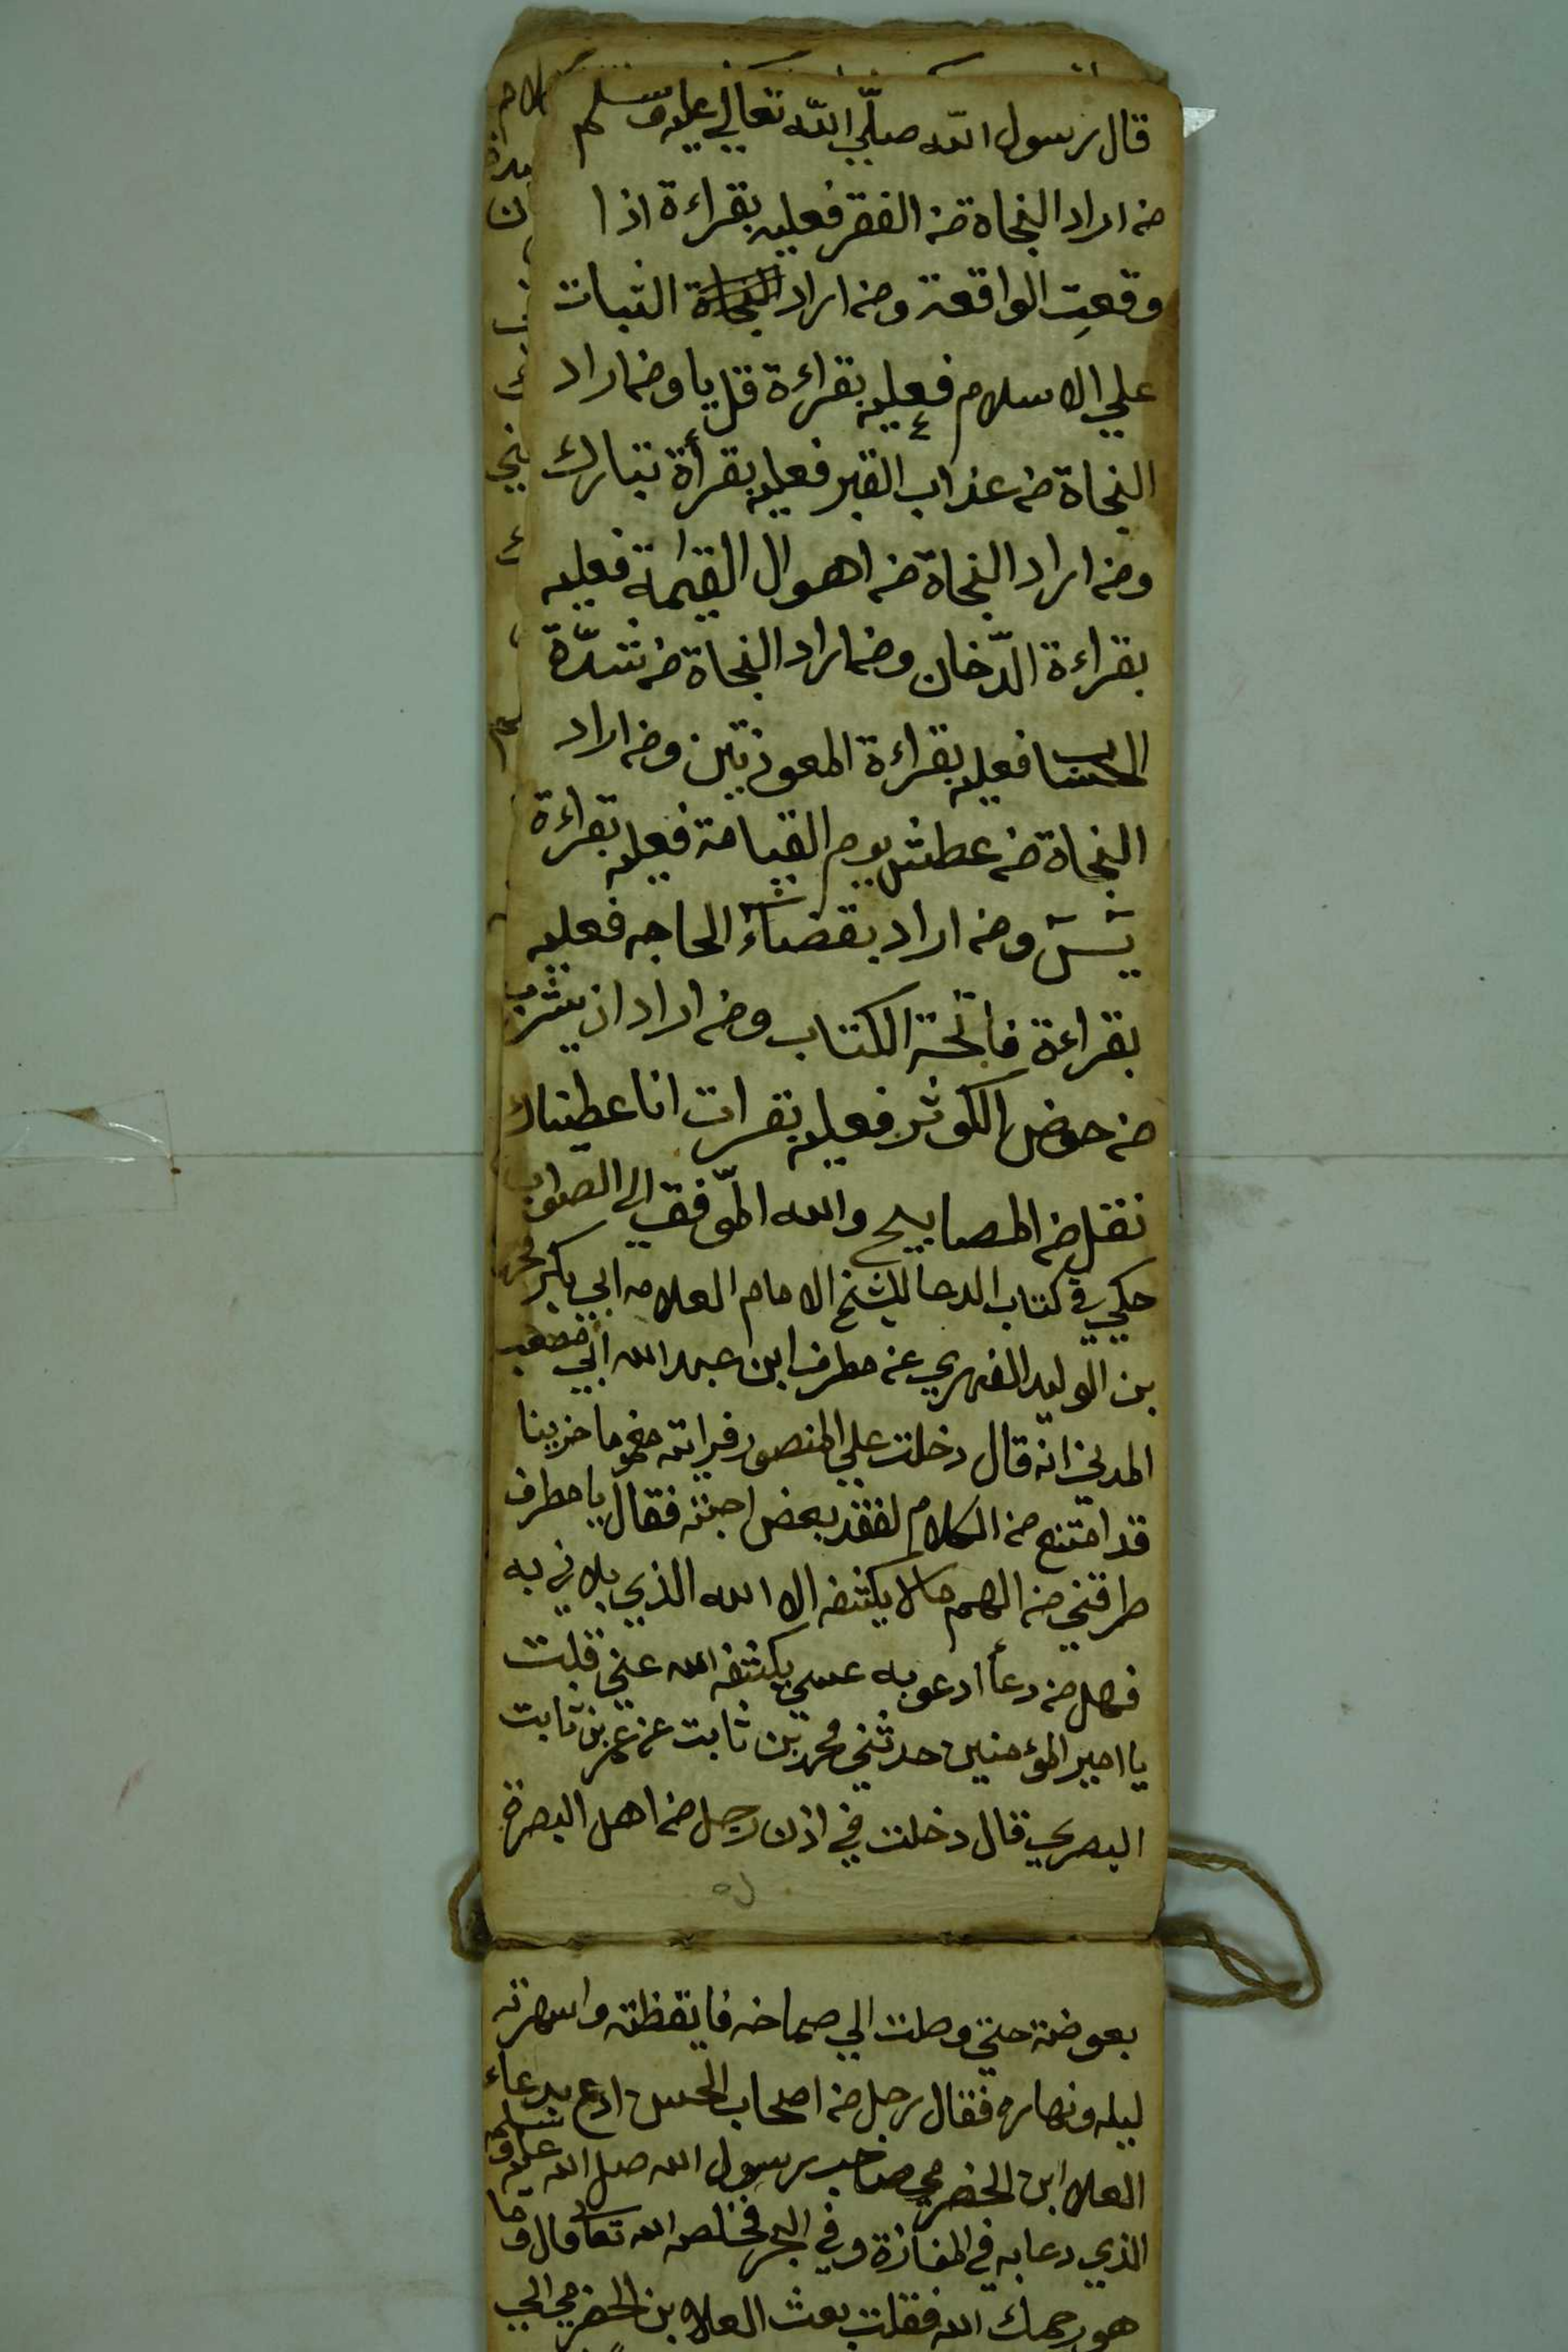 قال رسول الله صلّي الله تعالي عليه وسلم
من اراد النجاة من الفقر فعليه بقراءة اذا
وقعتِ الواقعة ومن اراد النجاة الثبات
علي الاسلام فعليه بقراءة قل يا ومن اراد
النجاة من عذاب القبر فعليه بقرأة تبارك
ومن اراد النجاة من اهوال القيمة فعليه
بقراءة الدّخان ومن اراد النجاة من شدّة
الحساب فعليه بقراءة المعوذتين ومن اراد
النجاة من عطش يوم القيامة فعليه بقراءة
يس ومن اراد بقضاء الحاجه فعليه
بقراءة فاتحة الكتاب ومن اراد ان يشرب
من حوض الكوثر فعليه بقرات انا عطيناك
نقل من المصابيح والله الموّفق الى الصواب
حكي في كتاب الدعا للشيخ الامام العلامه ابي بكر محمد
بن الوليد الفهري عن مطرف ابن عبد الله ابي مصعب
المدني انه قال دخلت علي المنصور فراته مغموما حزينا
قد امتنع من الكلام لفقد بعض احبته فقال يا مطرف
طرقني من الهم ما لا يكشفه الا الله الذي بلاني به
فهل من دعأ ادعو به عسي يكشفه الله عني قلت
يا امير المؤمنين حدثني محمد بن ثابت عن عمر بن ثابت
البصري قال دخلت في اذن رجل من اهل البصرة
بعوضة حتي وصلت الي صماخه فايقظته واسهرته
ليله ونهاره فقال رجل من اصحاب الحسن ادع بدعاء
العلا ابن الحضرمي صاحب رسول الله صل الله عليه وسلم
الذي دعا به في المفازة وفي البحر فخلصه الله تعالى قال وما
هو رحمك الله فقلت بعث العلا بن الحضرمي الي